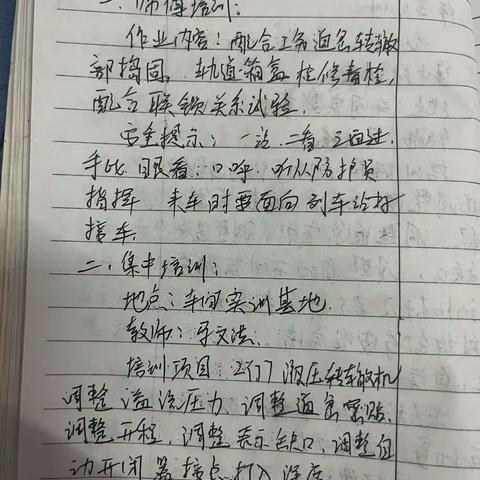 一、师傅培训：
作业内容：配合工务道岔转辙
部捣固，轨道箱盒检修看检，
配合联锁关系试验。
安全提示：一站、二看、三通过，
手比、眼看、口呼，听从防护员
指挥，来车时要面向列车站好
接车。
二、集中培训：
地点：车间实训基地。
教师：
培训项目：ZYJ7液压转辙机
调整溢流压力，调整道岔密贴，
调整开程，调整表示缺口，调整自
动开闭器接点打入深度